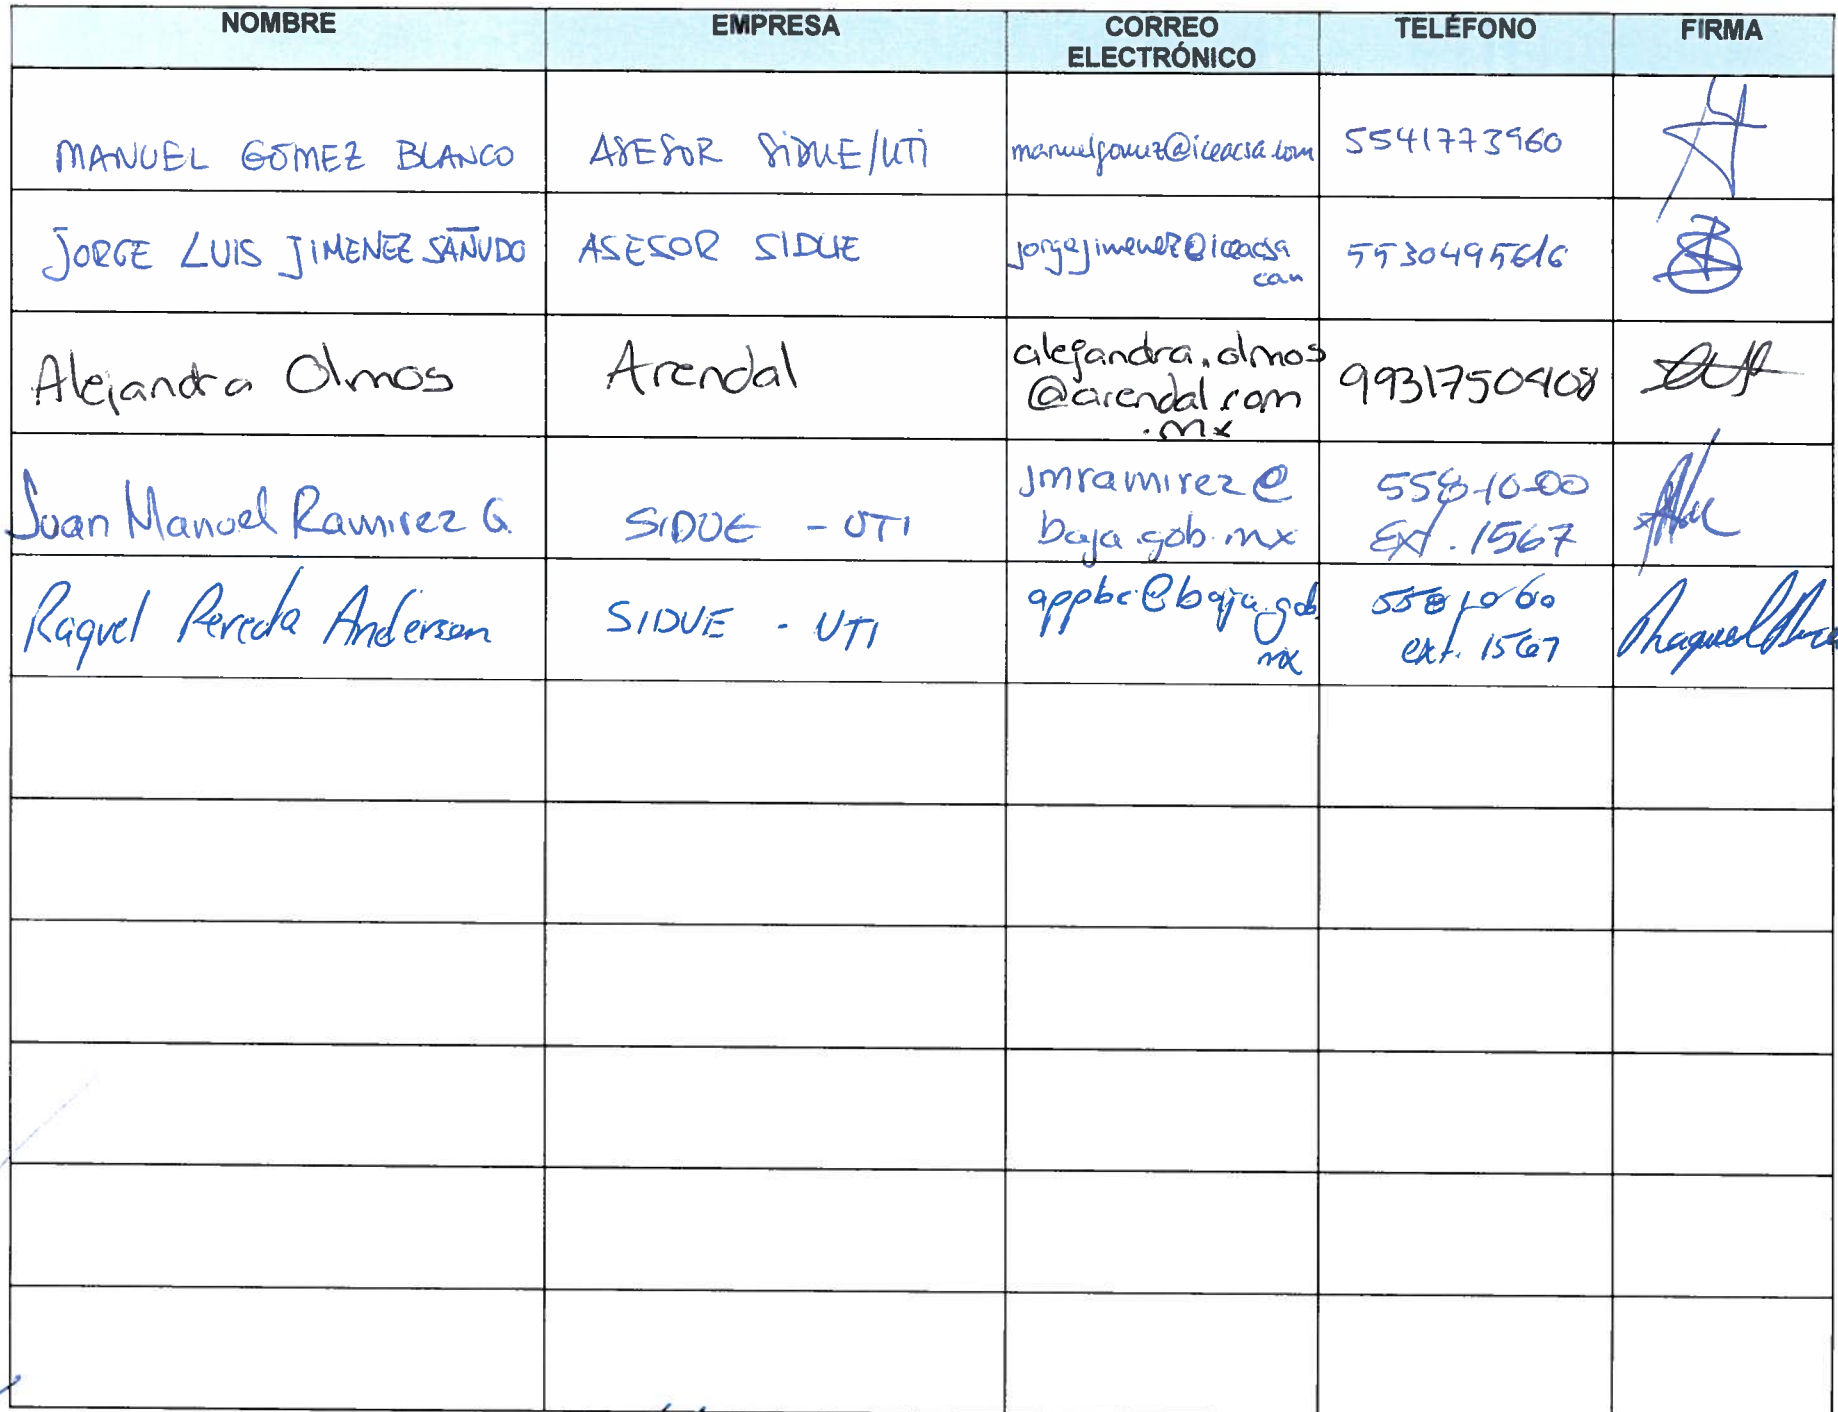 NOMBRE EMPRESA CORREO ELECTRÓNICO TELÉFONO FIRMA
MANUEL GÓMEZ BLANCO ASESOR SIDUE/UTI manuelgomez@iceacsa.com 5541773960
JORGE LUIS JIMENEZ SAÑUDO ASESOR SIDUE jorgejimenez@iceacsa 5530495616
com
Alejandra Olmos Arendal alejandra.olmos 9931750408
@arendal.com
.mx
Juan Manuel Ramirez G. SIDUE - UTI jmramirez@ 558-10-00
baja.gob.mx Ext. 1567
Raquel Pereda Anderson SIDUE - UTI appbc@baja.gob.
mx ext. 1567